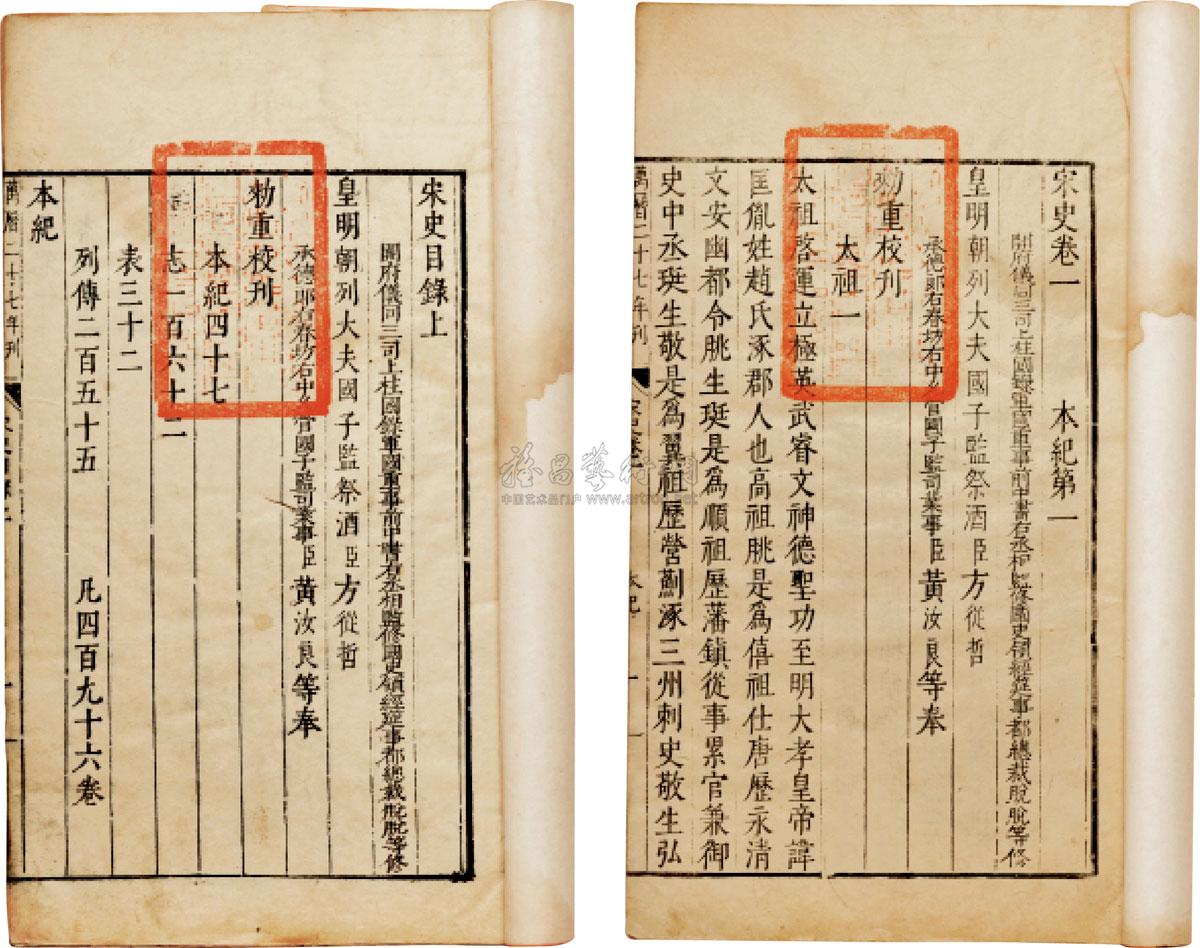 宋史目錄上
開府儀同三司上柱國錄軍國重事前中書右丞相監修國史領經筵事都總裁脫脫等修
皇明朝列大夫國子監祭酒臣方從哲
承德郎右春坊右中允管國子監司業事臣黃汝良等奉
勑重校刊
本紀四十七
志一百六十二
表三十二
列傳二百五十五 凡四百九十六卷
本紀
萬曆二十七年刊
宋史卷一 本紀第一
開府儀同三司上柱國錄軍國重事前中書右丞相監修國史領經筵事都總裁脫脫等修
皇明朝列大夫國子監祭酒臣方從哲
承德郎右春坊右中允管國子監司業事臣黃汝良等奉
勑重校刊
太祖一
太祖啓運立極英武睿文神德聖功至明大孝皇帝諱
匡胤姓趙氏涿郡人也高祖朓是為僖祖仕唐歷永清
文安幽都令朓生珽是為順祖歷藩鎮從事累官兼御
史中丞珽生敬是為翼祖歷營薊涿三州刺史敬生弘
萬曆二十七年刊 本紀 一
雅昌藝術網
中国艺术品门户 www.artron.net